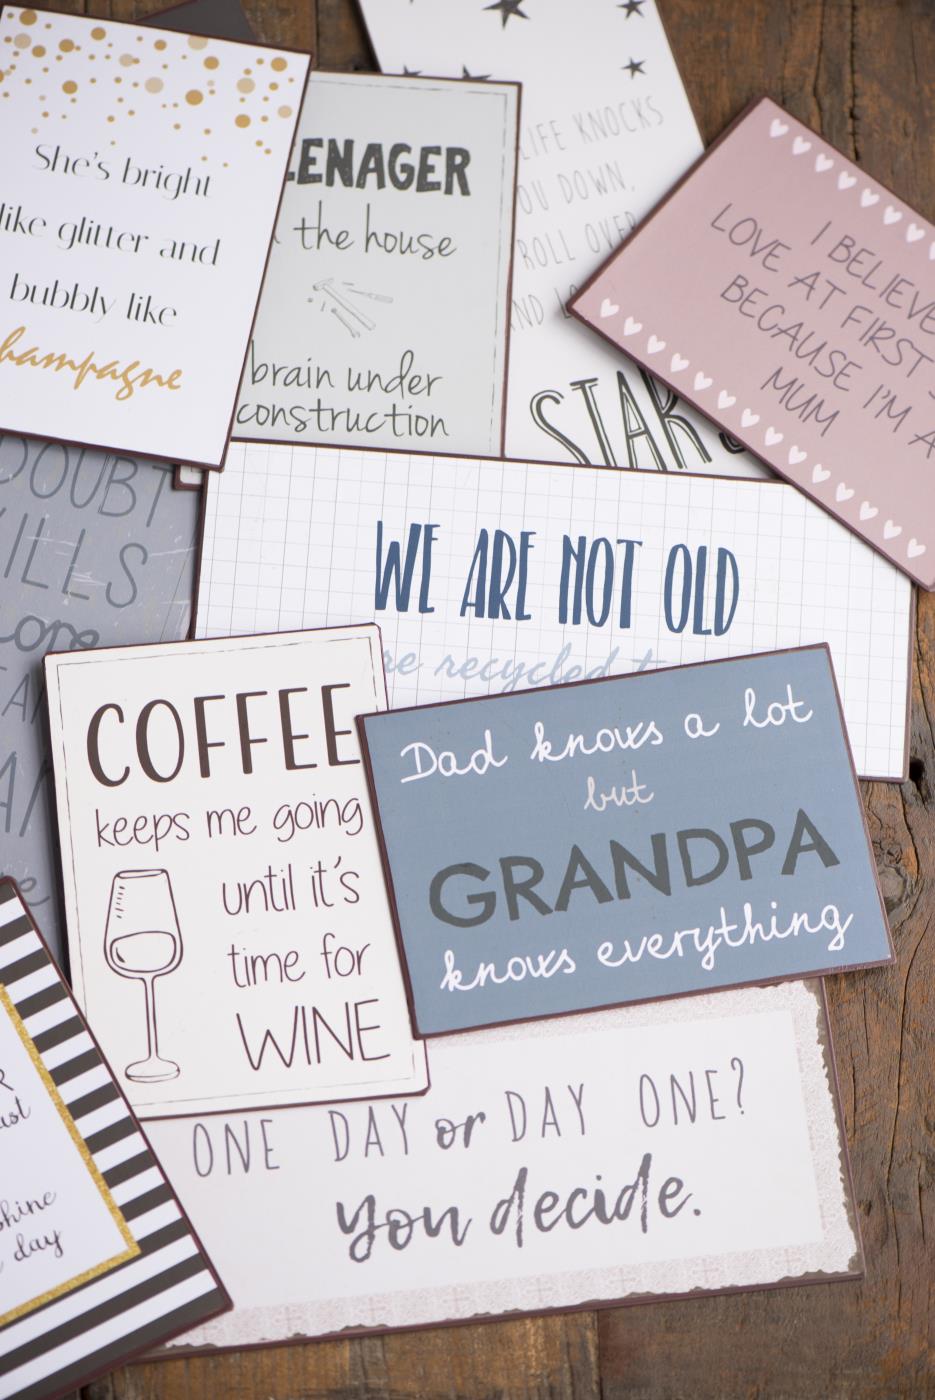 She's bright
like glitter and
bubbly like
hampagne
ENAGER
the house
brain under
construction
LIFE KNOCKS
OU DOWN,
ROLL OVER
ND LO
STARS
I BELIEVE
LOVE AT FIRST
BECAUSE I'M A
MUM
DOUBT
ILLS
ore
WE ARE NOT OLD
re recycled t
COFFEE
keeps me going
until it's
time for
WINE
Dad knows a lot
but
GRANDPA
knows everything
R
ust
hine
day
ONE DAY or DAY ONE?
you decide.